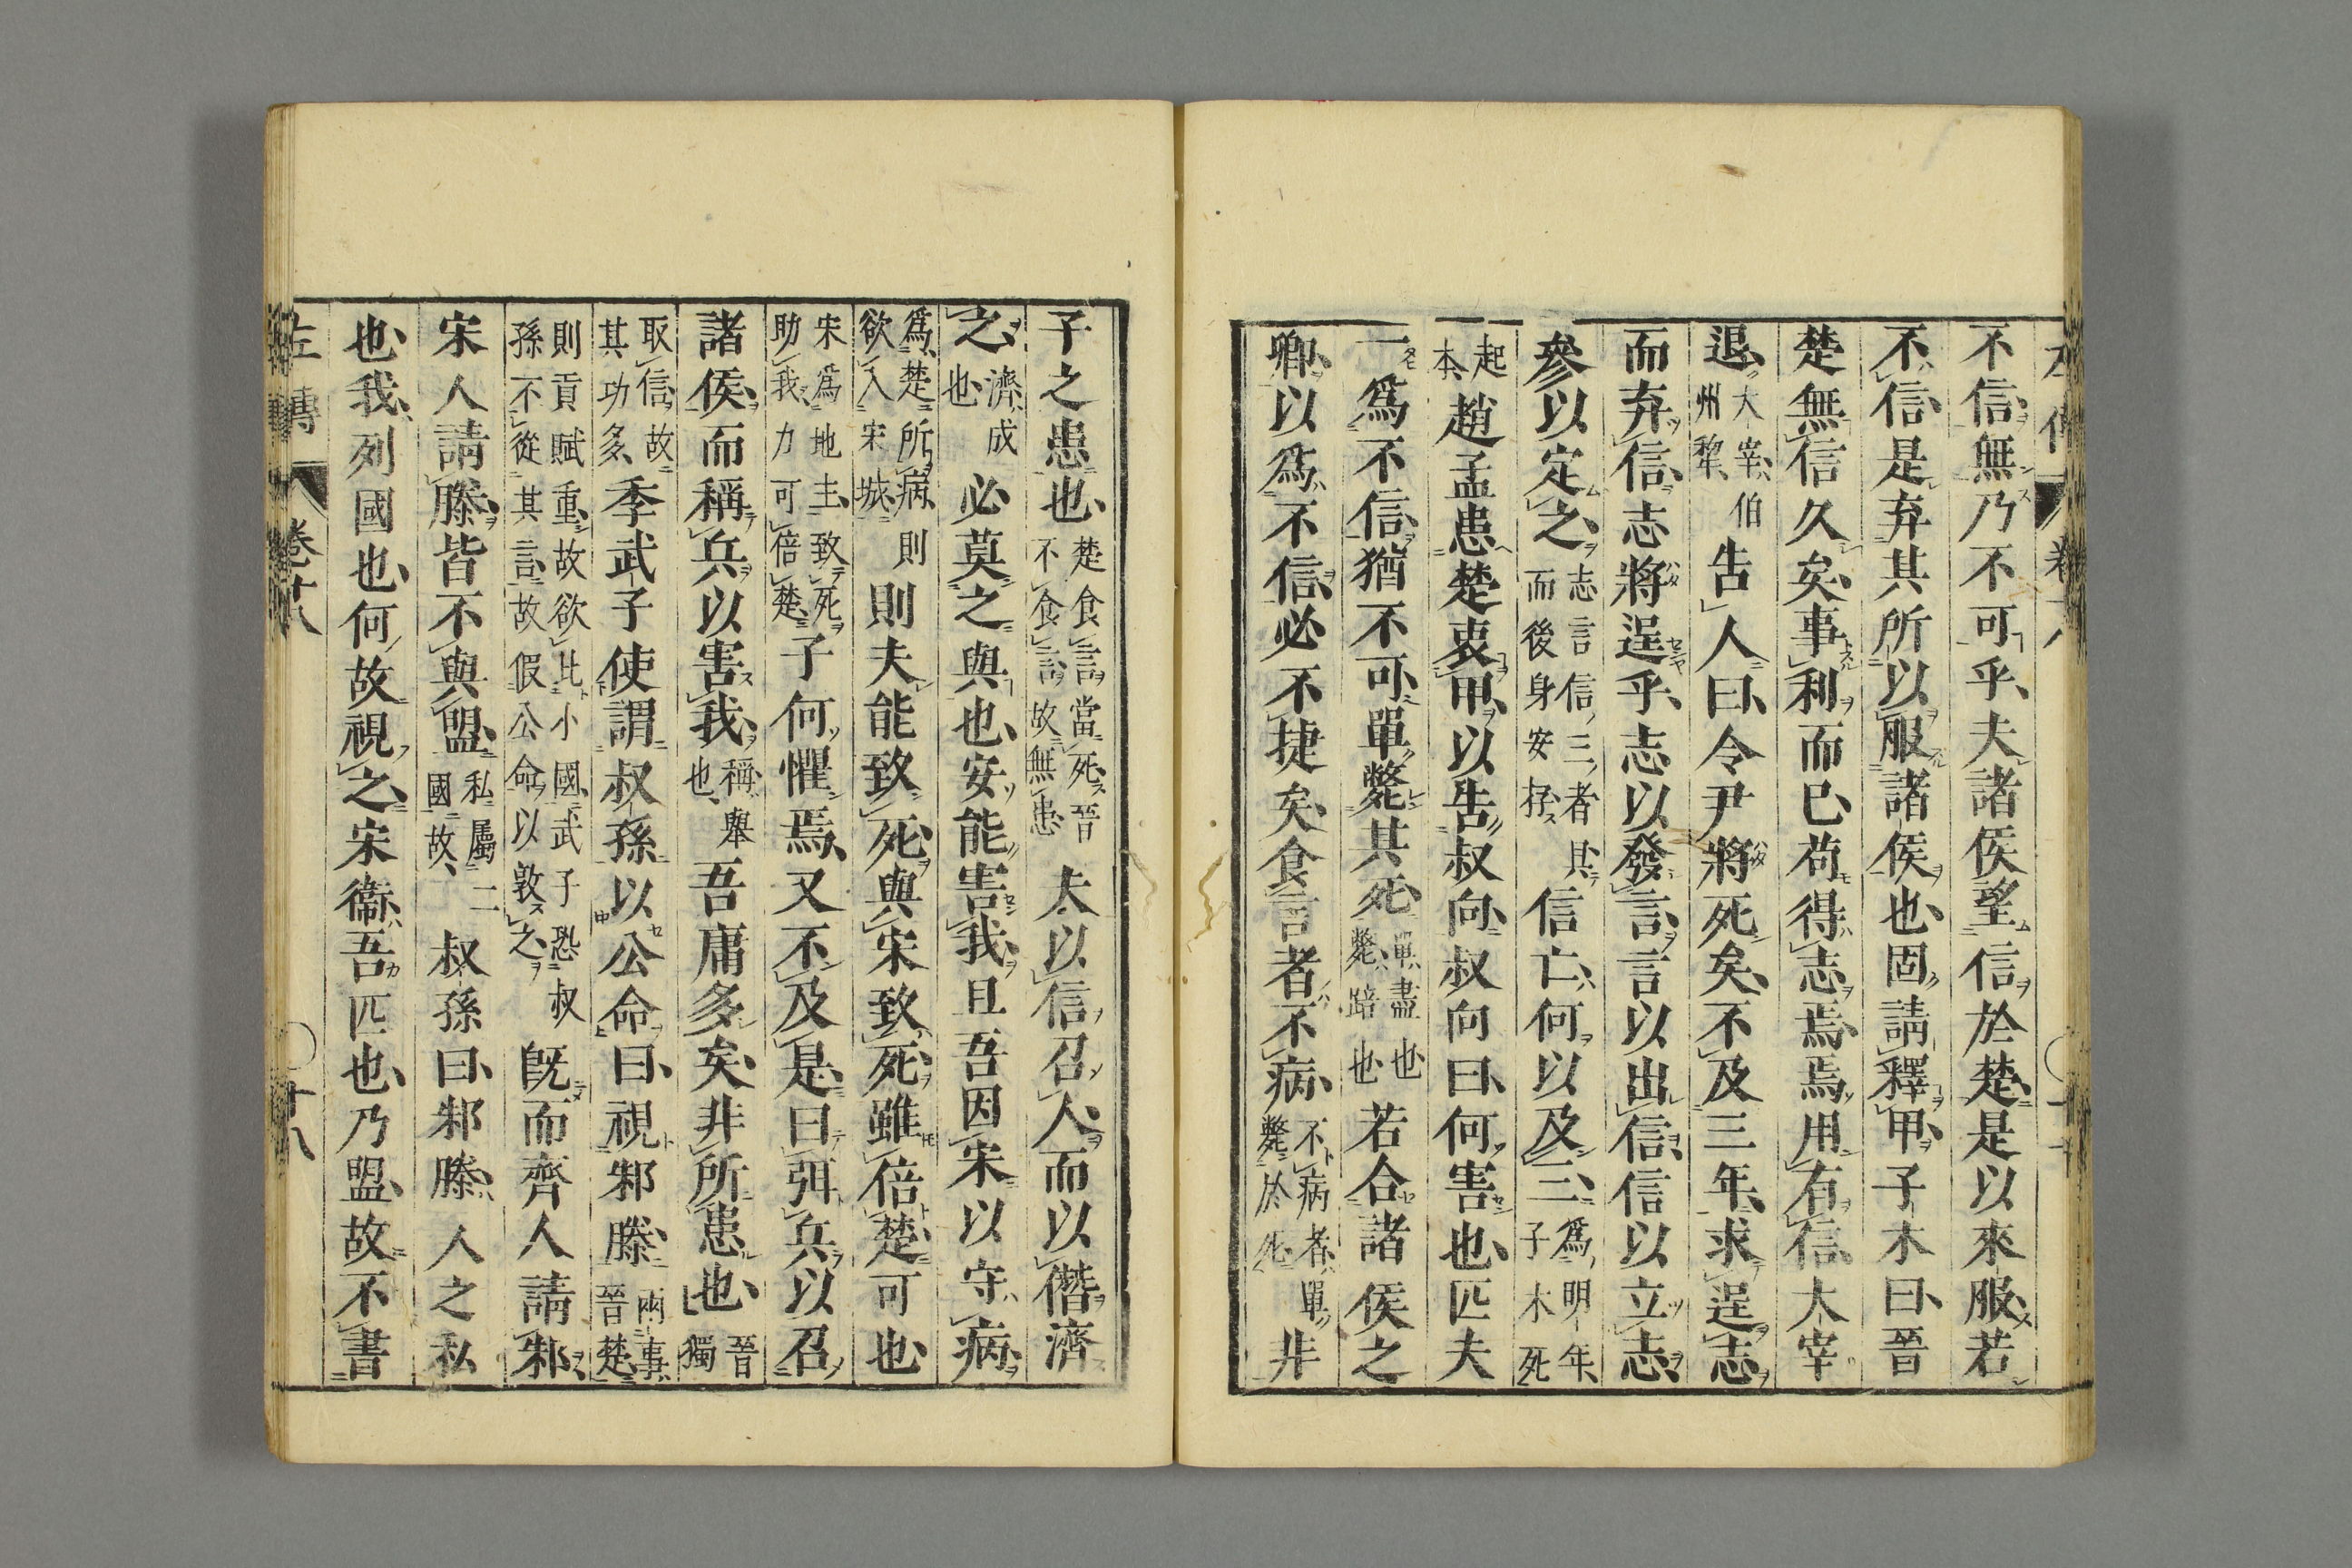 不信無乃不可乎夫諸侯望信於楚是以來服若
不信是弃其所以服諸侯也固請釋甲子木曰晉
楚無信久矣事利而已苟得志焉焉用有信大宰
退大宰伯州犂告人曰令尹將死矣不及三年求逞志
而弃信志將逞乎志以發言言以出信信以立志
參以定之志言信三者具而後身安存信亡何以及三爲明年子木死
起本趙孟患楚衷甲以告叔向叔向曰何害也匹夫
一爲不信猶不可單斃其死單盡也斃踣也若合諸侯之
卿以爲不信必不捷矣食言者不病不病者單斃於死非
子之患也楚食言當死晉不食言故無患夫以信召人而以僭濟
之濟成也必莫之與也安能害我且吾因宋以守病
爲楚所病則欲入宋城則夫能致死與宋致死雖倍楚可也
宋爲地主致死助我力可倍楚子何懼焉又不及是曰弭兵以召
諸侯而稱兵以害我稱舉也吾庸多矣非所患也晉獨
取信故其功多季武子使謂叔孫以公命曰視邾滕兩事晉楚
則貢賦重故欲比小國武子恐叔孫不從其言故假公命以敦之既而齊人請邾
宋人請滕皆不與盟私屬二國故叔孫曰邾滕人之私
也我列國也何故視之宋衞吾匹也乃盟故不書
左傳 卷十八 十八